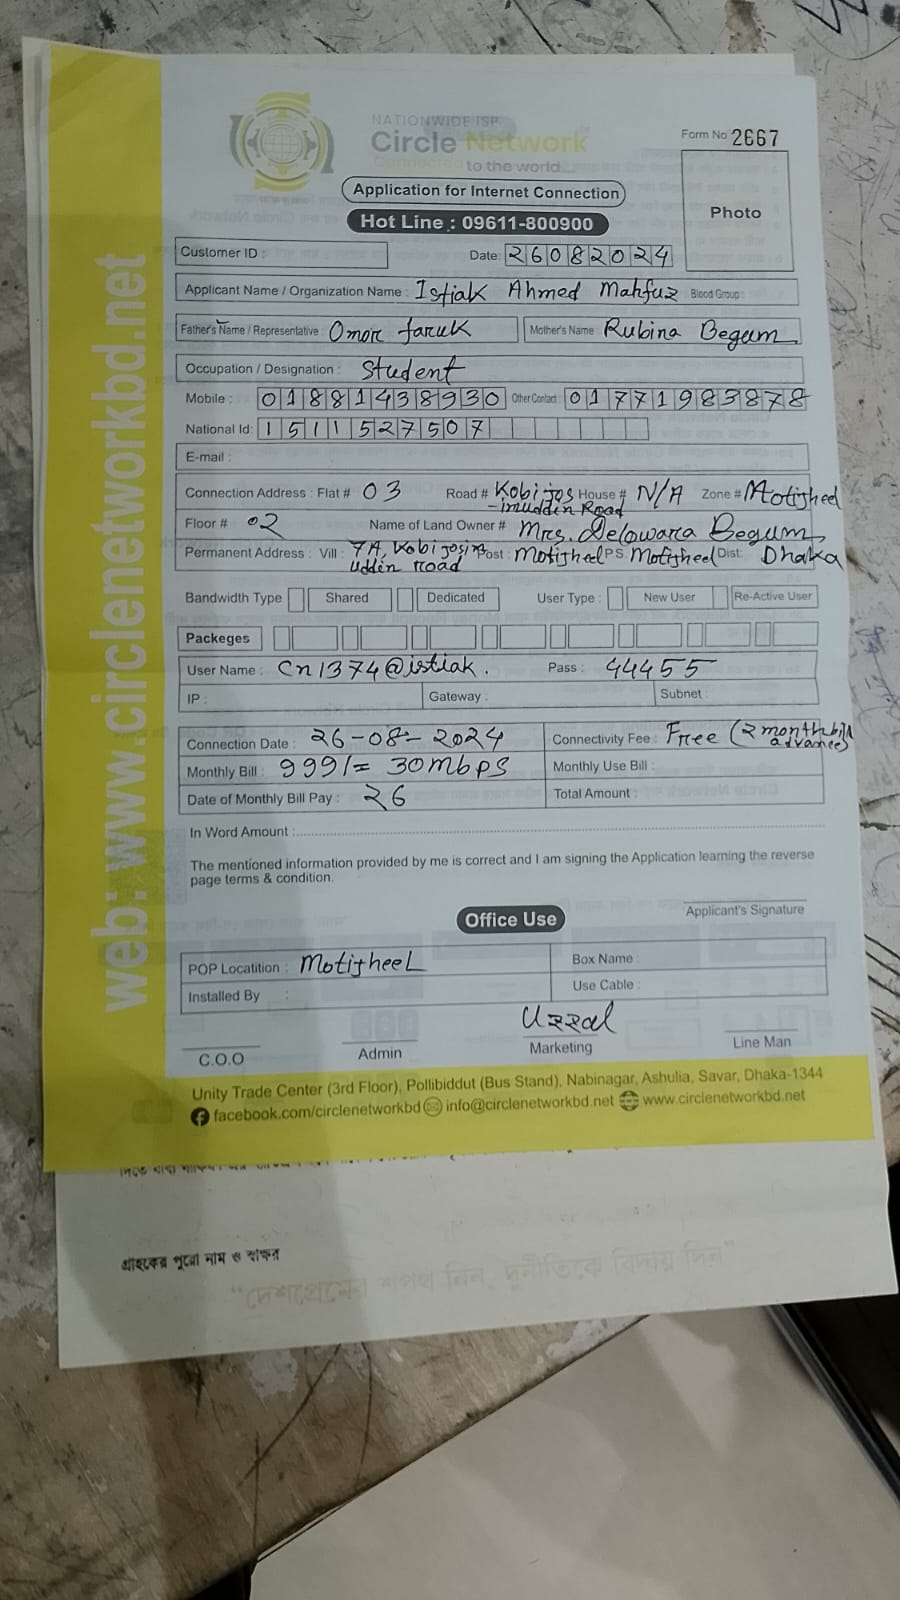 NATIONWIDE ISP
Circle Network
Connected to the world
Form No 2667
Application for Internet Connection
Photo
Hot Line : 09611-800900
Customer ID :
Date: 26082024
Applicant Name / Organization Name : Istiak Ahmed Mahfuz Blood Group :
Father's Name / Representative Omor faruk Mother's Name : Rubina Begum
Occupation / Designation : Student
Mobile : 01881438930 Other Contact : 01771983878
National Id: 1511527507
E-mail :
Connection Address : Flat # 03 Road # Kobi jos House # N/A Zone # Motijheel
-imuddin Road
Floor # 02 Name of Land Owner # Mrs. Delowara Begum
Permanent Address : Vill : 7A, Kobi josim Post : Motijheel P.S. Motijheel Dist: Dhaka
uddin road
Bandwidth Type Shared Dedicated User Type : New User Re-Active User
Packeges
User Name : cn1374@istiak. Pass : 44455
IP : Gateway : Subnet :
Connection Date : 26-08-2024 Connectivity Fee : Free (2 month bill
advance)
Monthly Bill : 999/= 30mbps Monthly Use Bill :
Date of Monthly Bill Pay : 26 Total Amount :
In Word Amount :
The mentioned information provided by me is correct and I am signing the Application learning the reverse
page terms & condition.
Applicant's Signature
Office Use
POP Locatition : MotijheeL Box Name :
Installed By : Use Cable :
Uzzal
C.O.O Admin Marketing Line Man
Unity Trade Center (3rd Floor), Pollibiddut (Bus Stand), Nabinagar, Ashulia, Savar, Dhaka-1344
facebook.com/circlenetworkbd info@circlenetworkbd.net www.circlenetworkbd.net
web: www.circlenetworkbd.net
গ্রাহকের পুরো নাম ও স্বাক্ষর
“দেশপ্রেমের শপথ নিন, দুর্নীতিকে বিদায় দিন”